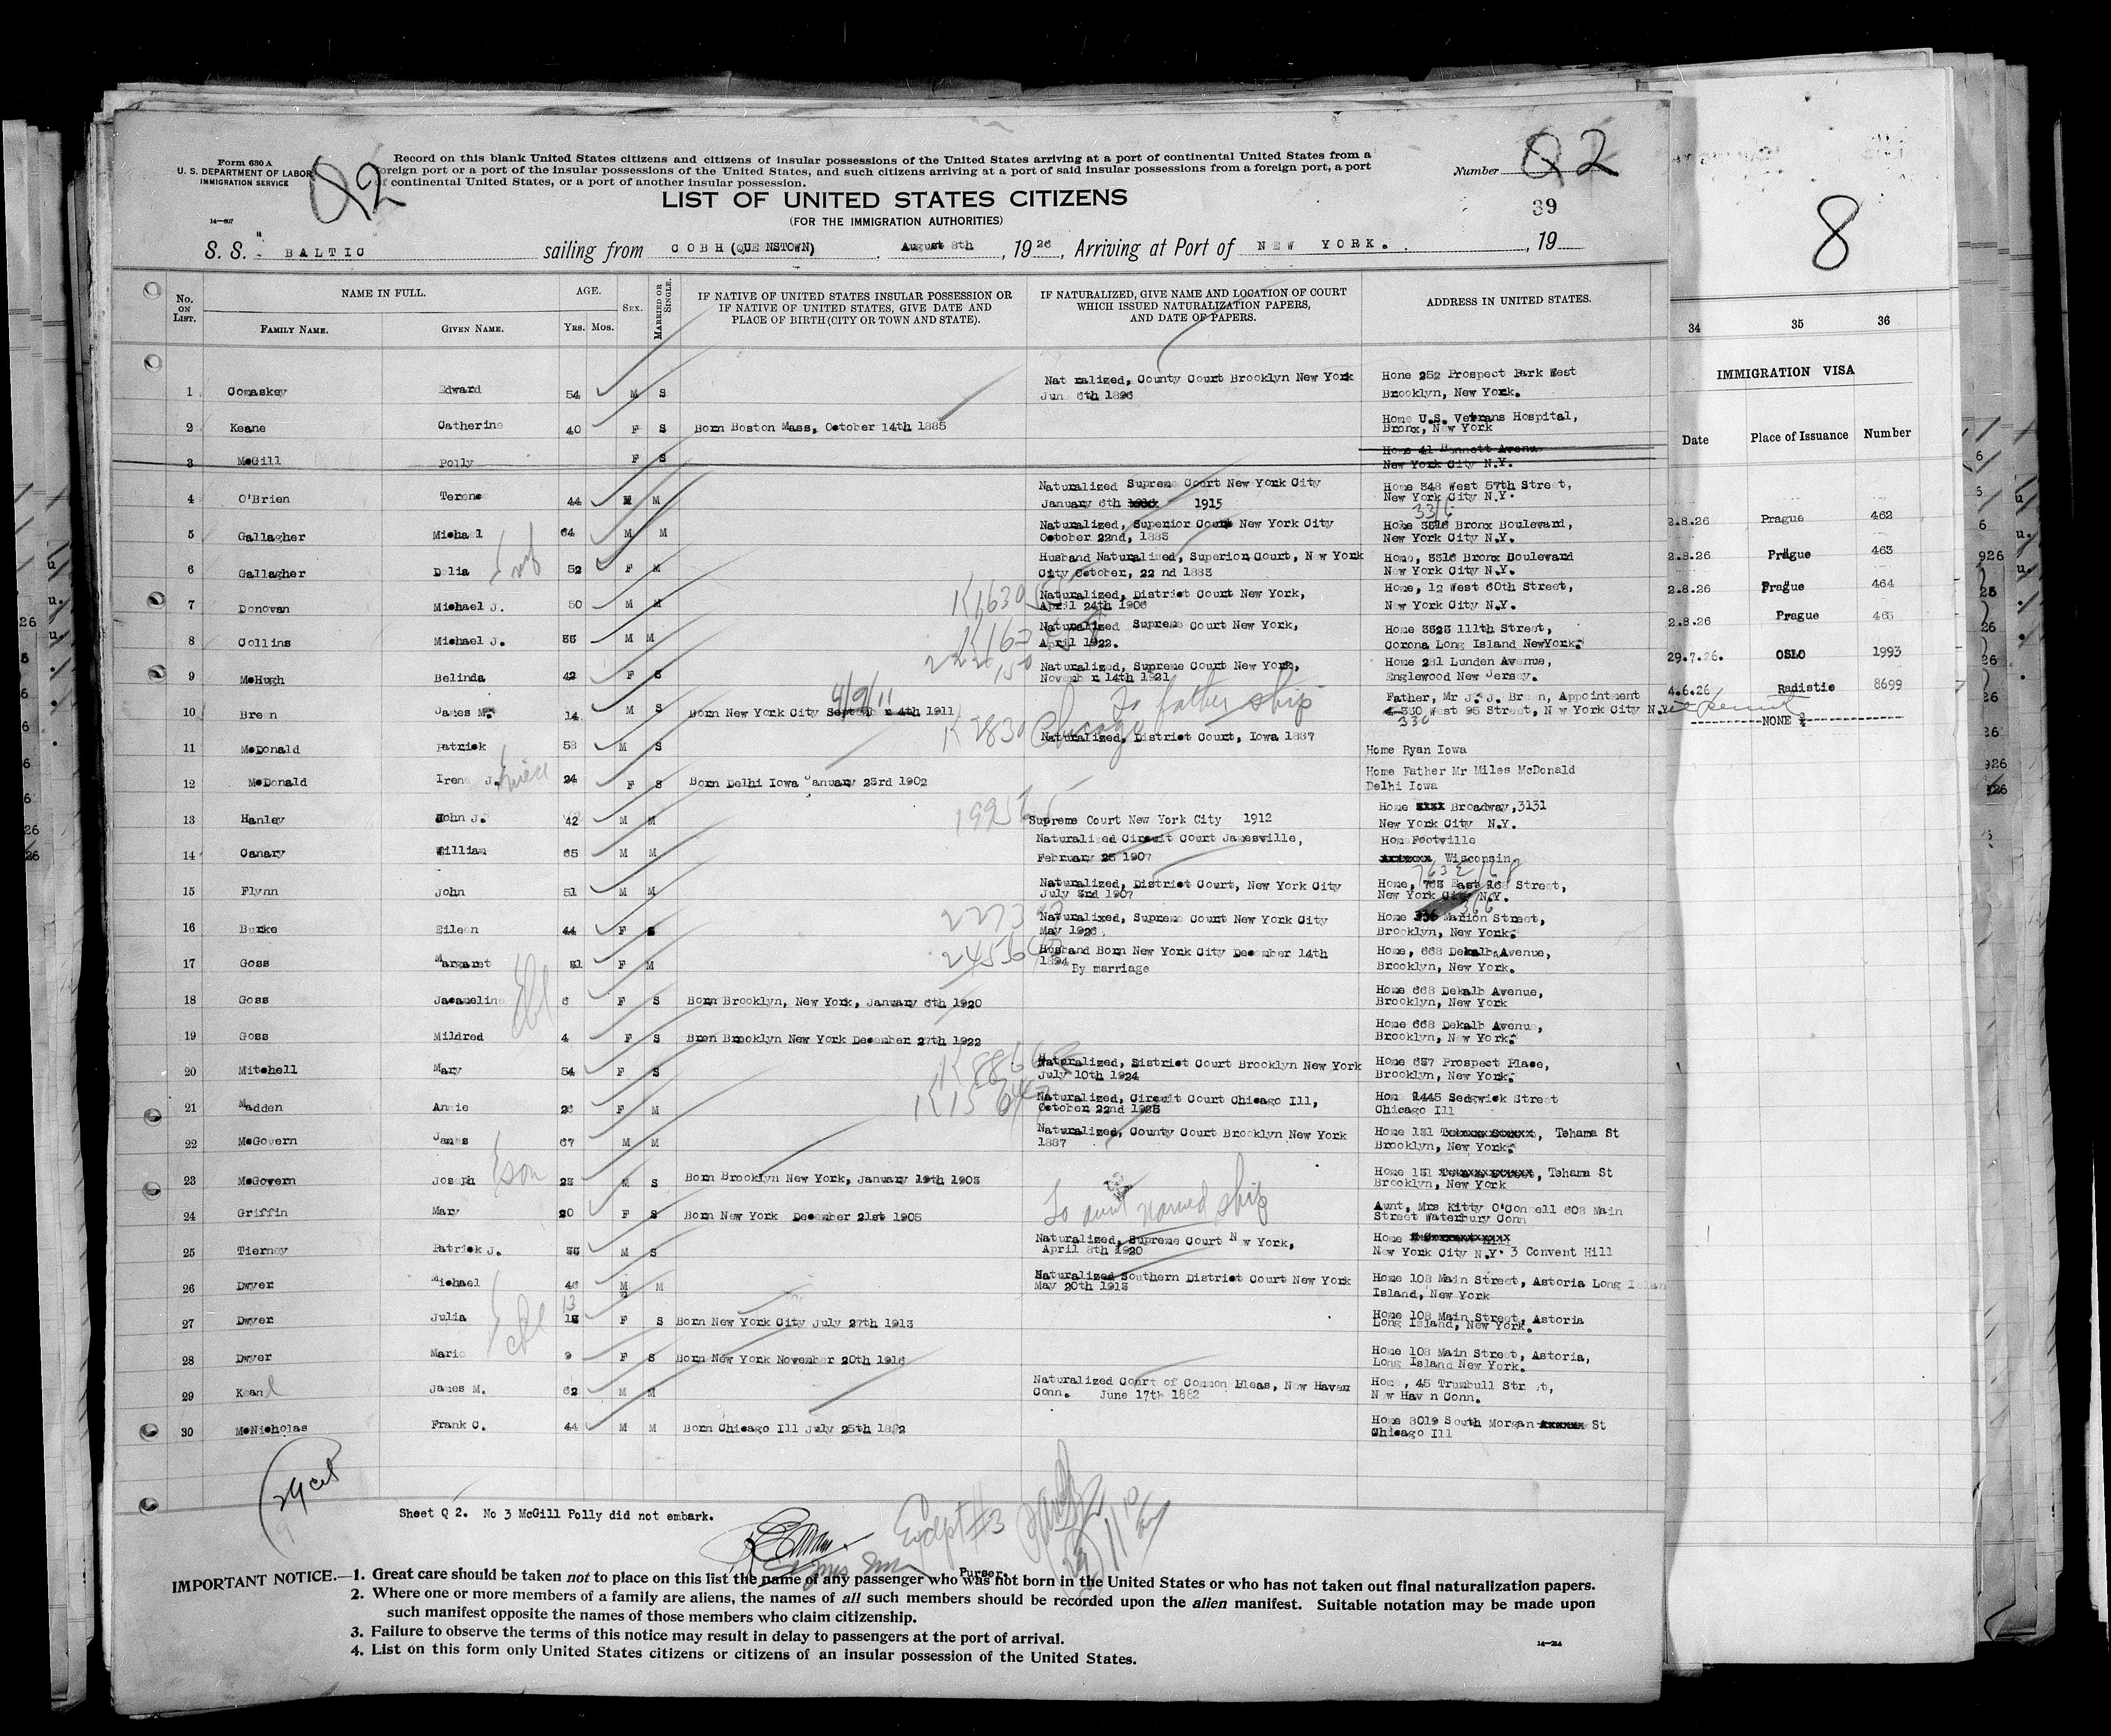 Form 630 A
U. S. DEPARTMENT OF LABOR
IMMIGRATION SERVICE
14—607
Q2
Record on this blank United States citizens and citizens of insular possessions of the United States arriving at a port of continental United States from a
foreign port or a port of the insular possessions of the United States, and such citizens arriving at a port of said insular possessions from a foreign port, a port
of continental United States, or a port of another insular possession.
Number Q2
LIST OF UNITED STATES CITIZENS
(FOR THE IMMIGRATION AUTHORITIES)
39
S. S. " BALTIC sailing from COBH (QUE NSTOWN) August 8th, 1926, Arriving at Port of NEW YORK. , 19
No. ON LIST. NAME IN FULL. AGE. SEX. MARRIED OR SINGLE. IF NATIVE OF UNITED STATES INSULAR POSSESSION OR IF NATIVE OF UNITED STATES, GIVE DATE AND PLACE OF BIRTH (CITY OR TOWN AND STATE). IF NATURALIZED, GIVE NAME AND LOCATION OF COURT WHICH ISSUED NATURALIZATION PAPERS, AND DATE OF PAPERS. ADDRESS IN UNITED STATES.
FAMILY NAME. GIVEN NAME. YRS. MOS.
1 Comaskey Edward 54 M S Nat ralized, County Court Brooklyn New York Home 252 Prospect Park West
Jun 6th 1896 Brooklyn, New York.
2 Keane Catherine 40 F S Born Boston Mass, October 14th 1885 Home U.S. Vetrans Hospital,
Bronx, New York
3 McGill Polly F S Home 41 Bennett Avenue
New York City N.Y.
4 O'Brien Terence 44 M M Naturalized Supreme Court New York City Home 348 West 57th Street,
January 6th 1915 New York City N.Y.
3316
5 Gallagher Michael 64 M M Naturalized, Superior Court New York City Home 3316 Bronx Boulevard,
October 22nd, 1883 New York City N.Y.
wf
6 Gallagher Delia 52 F M Husband Naturalized, Superior Court, New York Home, 3316 Bronx Boulevard
City October, 22 nd 1883 New York City N.Y.
7 Donovan Michael J. 50 M M Naturalized, District Court New York, Home, 12 West 60th Street,
April 24th 1906 New York City N.Y.
8 Collins Michael J. 35 M M Naturalized Supreme Court New York, Home 3523 111th Street,
April 1922. Corona Long Island NewYork.
9 McHugh Belinda 42 F S Naturalized, Supreme Court New York, Home 281 Lunden Avenue,
November 14th 1921 Englewood New Jersey.
4/9/11 To father ship
10 Breen James M. 14 M S Born New York City September 4th 1911 Father, Mr J. J. Breen, Appointment
330 West 95 Street, New York City N.Y.
330
11 McDonald Patrick 53 M S Naturalized, District Court, Iowa 1887 Home Ryan Iowa
Chicago
niece
12 McDonald Irene J. 24 F S Born Delhi Iowa January 23rd 1902 Home Father Mr Miles McDonald
Delhi Iowa
13 Hanley John J. 42 M M Supreme Court New York City 1912 Home xxxx Broadway,3131
New York City N.Y.
14 Canary William 65 M M Naturalized Circuit Court Janesville, Home Footville
February 25 1907 Wisconsin
763 E 168
15 Flynn John 51 M M Naturalized, District Court, New York City Home, 763 East 168 Street,
July 3rd 1907 New York City N.Y.
366
16 Burke Eileen 44 F S Naturalized, Supreme Court New York City Home 336 Marion Street,
May 1926. Brooklyn, New York.
17 Goss Margaret 31 F M Husband Born New York City December 14th Home, 668 Dekalb Avenue,
1894 By marriage Brooklyn, New York.
18 Goss Jacqueline 6 F S Born Brooklyn, New York, January 6th 1920 Home 668 Dekalb Avenue,
Brooklyn, New York
19 Goss Mildred 4 F S Bron Brooklyn New York December 27th 1922 Home 668 Dekalb Avenue,
Brooklyn, New York.
20 Mitchell Mary 54 F S Naturalized, District Court Brooklyn New York Home 637 Prospect Place,
July 10th 1924 Brooklyn, New York.
21 Madden Annie 26 F M Naturalized, Circuit Court Chicago Ill, Home 1445 Sedgwick Street
October 22nd 1925 Chicago Ill
22 McGovern James 67 M M Naturalized, County Court Brooklyn New York Home 131 Tehama St
1887 Brooklyn, New York.
son
23 McGovern Joseph 23 M S Born Brooklyn New York, January 19th 1903 Home 131 Tehama St
Brooklyn, New York
To aunt named ship
24 Griffin Mary 20 F S Born New York December 21st 1905 Aunt, Mrs Kitty O'Connell 608 Main
Street Waterbury Conn
25 Tierney Patrick J. 35 M S Naturalized, Supreme Court New York, Home
April 8th 1920 New York City N.Y. 3 Convent Hill
26 Dwyer Michael 46 M M Naturalized Southern District Court New York Home 108 Main Street, Astoria Long Islan
May 20th 1913 Island, New York
13
27 Dwyer Julia 13 F S Born New York City July 27th 1913 Home 108 Main Street, Astoria
Long Island, New York.
28 Dwyer Marie 9 F S Born New York November 20th 1916 Home 108 Main Street, Astoria,
Long Island New York.
29 Keane James M. 62 M M Naturalized Court of Common Pleas, New Haven Home, 45 Trumbull Street,
Conn. June 17th 1882 New Haven Conn.
30 McNicholas Frank C. 44 M M Born Chicago Ill July 25th 1882 Home 8019 South Morgan St
Chicago Ill
Sheet Q 2. No 3 McGill Polly did not embark.
Except #3
Purser.
IMPORTANT NOTICE.—1. Great care should be taken not to place on this list the name of any passenger who was not born in the United States or who has not taken out final naturalization papers.
2. Where one or more members of a family are aliens, the names of all such members should be recorded upon the alien manifest. Suitable notation may be made upon
such manifest opposite the names of those members who claim citizenship.
3. Failure to observe the terms of this notice may result in delay to passengers at the port of arrival.
4. List on this form only United States citizens or citizens of an insular possession of the United States.
14—214
8
34 35 36
IMMIGRATION VISA
Date Place of Issuance Number
2.8.26 Prague 462
2.8.26 Prague 463
2.8.26 Prague 464
2.8.26 Prague 465
29.7.26. OSLO 1993
4.6.26 Radistie 8699
NONE